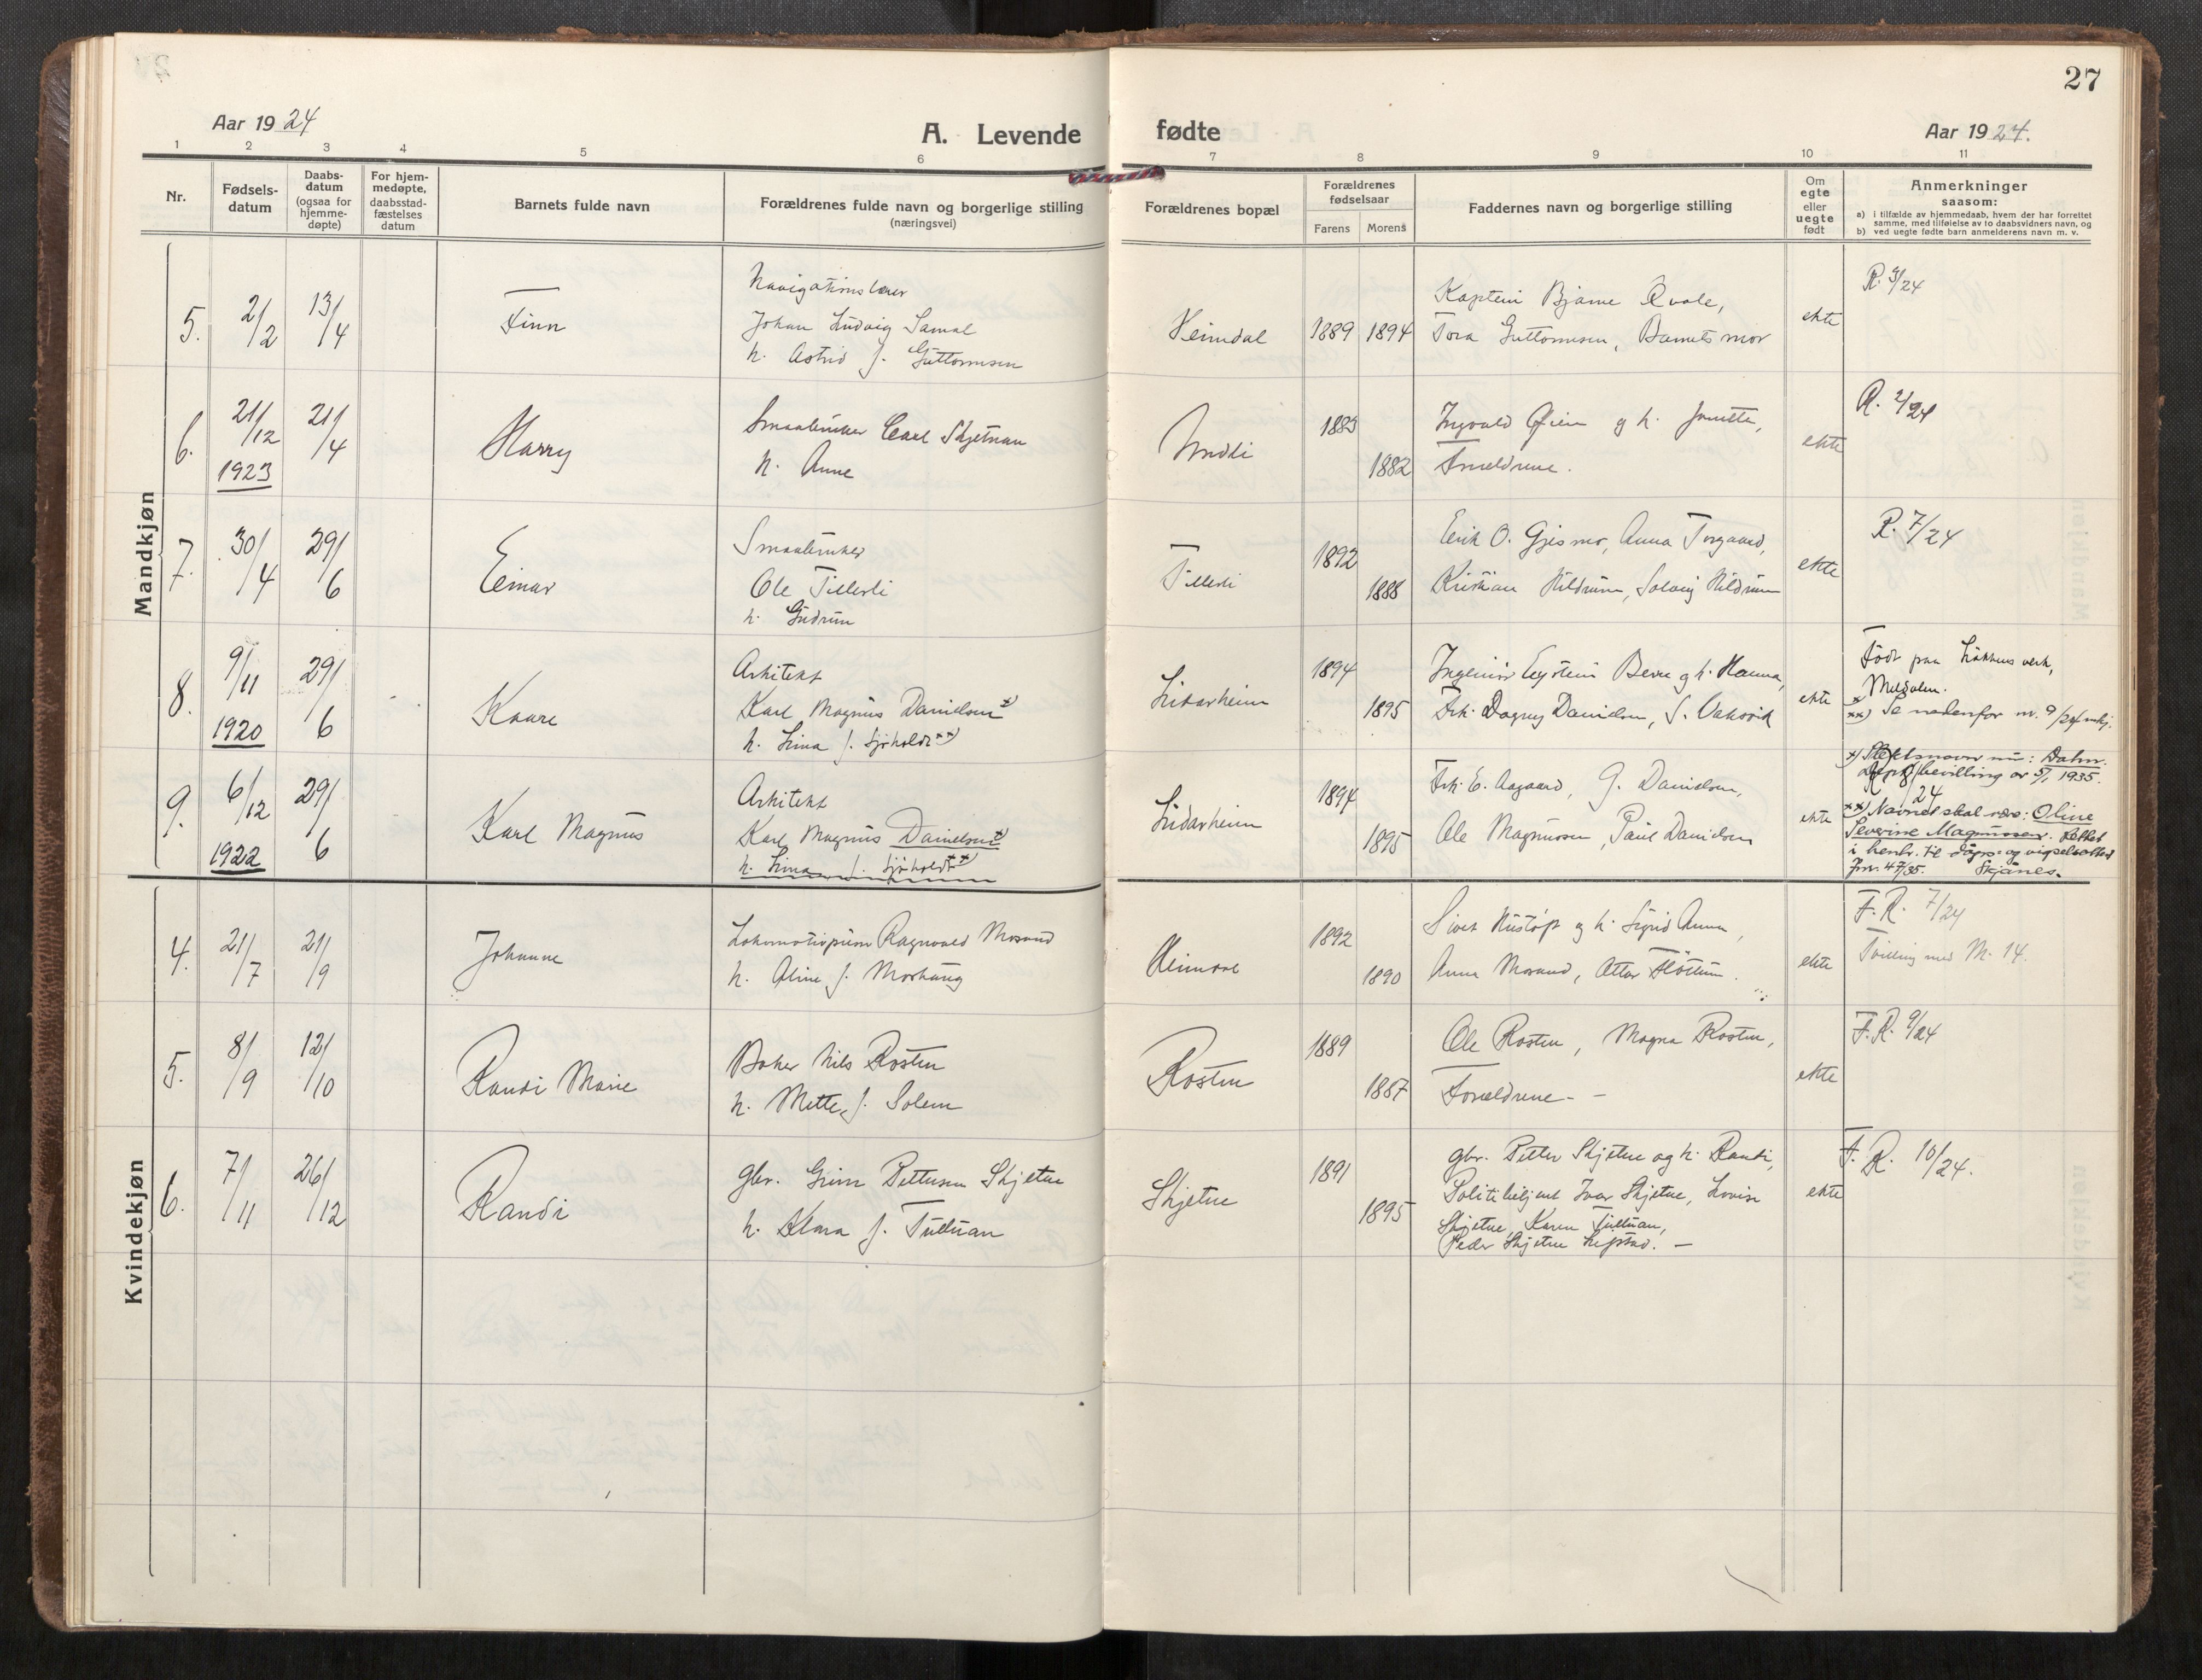 27
Aar 1924
A. Levende fødte
Aar 1924.
1 2 3 4 5 6 7 8 9 10 11
Nr.
Fødsels-
datum
Daabs-
datum
(ogsaa for
hjemme-
døpte)
For hjem-
medøpte,
daabsstad-
fæstelses
datum
Barnets fulde navn
Forældrenes fulde navn og borgerlige stilling
(næringsvei)
Forældrenes bopæl
Forældrenes
fødselsaar
Farens Morens
Faddernes navn og borgerlige stilling
Om
egte
eller
uegte
født
Anmerkninger
saasom:
a) i tilfælde av hjemmedaab, hvem der har forrettet
samme, med tilføielse av to daabsvidners navn, og
b) ved uegte fødte barn anmelderens navn m. v.
Mandkjøn
5. 2/2 13/4
Finn
Navigationslærer
Johan Ludvig Samal
h. Astrid f. Guttormsen
Heimdal
1889 1894
Kaptein Bjarne Qvale,
Tora Guttormsen, Barnets mor
ekte
R. 3/24
6. 21/12 1923 21/4
Harry
Smaabruker Carl Skjetnan
h. Anne
1883
1882
Ingvald Øien og h. Janette,
Forældrene.
ekte
R. 2/24
7. 30/4 29/6
Einar
Smaabruker
Ole Tillerli
h. Gudrun
Tillerli
1892
1888
Erik O. Gjesmo, Anna Torgaard,
Kristian Hildrum, Solveig Hildrum
ekte
R. 7/24
8. 9/11 1920 29/6
Kaare
Arkitekt
Karl Magnus Danielsen x)
h. Lina f. Sjøholdt xx)
Lidarheim
1894
1895
Ingeniør Eystein Berre og h. Hanna,
Frk. Dagny Danielsen, S. Vaksvik
ekte
Født paa Løkkens verk,
Meldalen.
x)
xx) Se nedenfor nr. 9/24 mkj.
9. 6/12 1922 29/6
Karl Magnus
Arkitekt
Karl Magnus Danielsen x)
h. Lina f. Sjøholdt xx)
Lidarheim
1894
1895
Frk. E. Aagaard, G. Danielsen,
Ole Magnussen, Paul Danielsen
ekte
x) Slektsnavn nu: Dahn.
bevilling av 5/1 1935.
R. 8/24
xx) Navnet skal være: Oline
Severine Magnussen. Rettet
i henh. til daaps- og vigselsattest
Jnr. 47/35. Skjånes.
Kvindekjøn
4. 21/7 21/9
Johanne
Lokomotivpusser Ragnvald Morsund
h. Aline f. Moshaug
Heimdal
1892
1890
Sivert Nustøp og h. Sigrid Anna,
Anna Morsund, Ottar Fløttum.
ekte
F. R. 7/24
Tvilling med M. 14.
5. 8/9 12/10
Randi Marie
Baker Nils Rosten
h. Mette f. Solem
Rosten
1889
1887
Ole Rosten, Magna Rosten,
Forældrene - -
ekte
F. R. 9/24
6. 7/11 26/12
Randi
gbr. Grim Pettersen Skjetne
h. Klara f. Tulluan
Skjetne
1891
1895
gbr. Petter Skjetne og h. Randi,
Politibetjent Ivar Skjetne, Lovise
Skjetne, Karen Tulluan,
Peder Skjetne
ekte
F. R. 10/24.